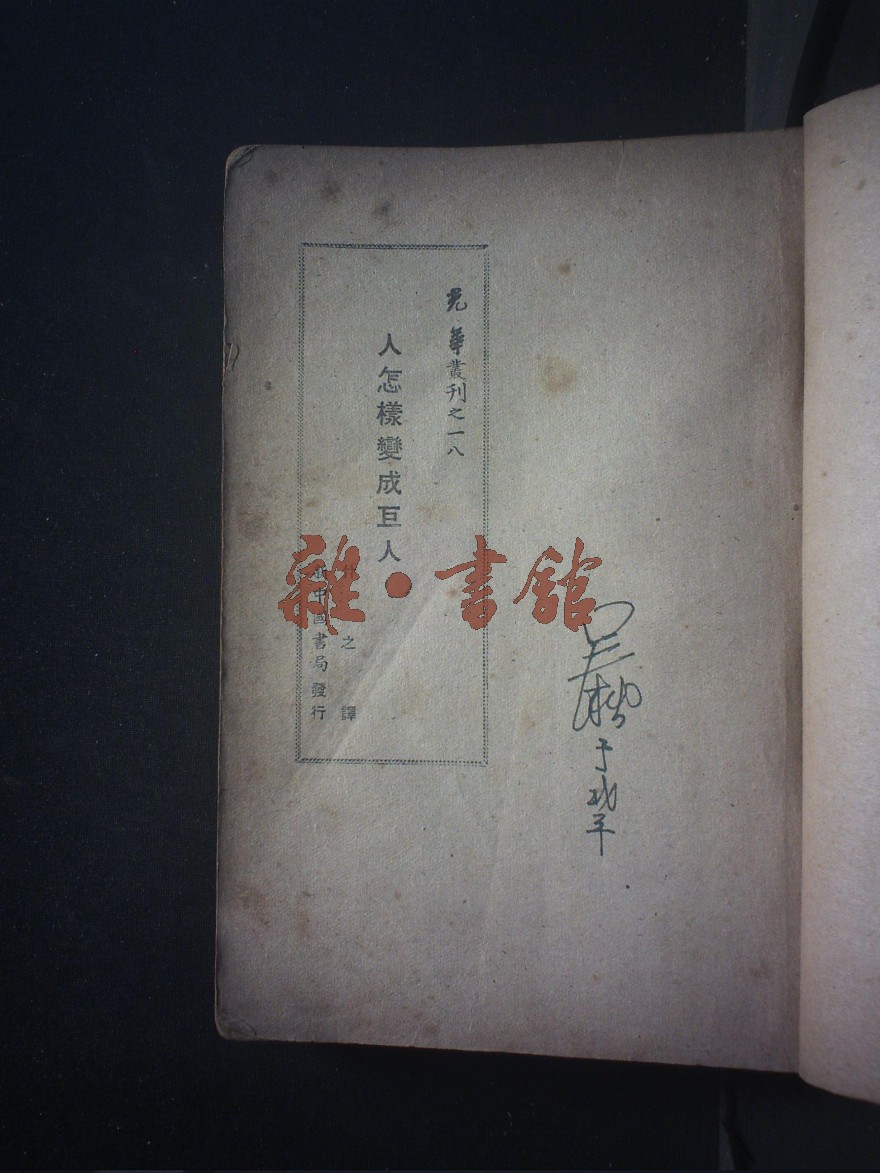 光華叢刊之一八
人怎樣變成巨人
之 譯
中国書局發行
雜·書館